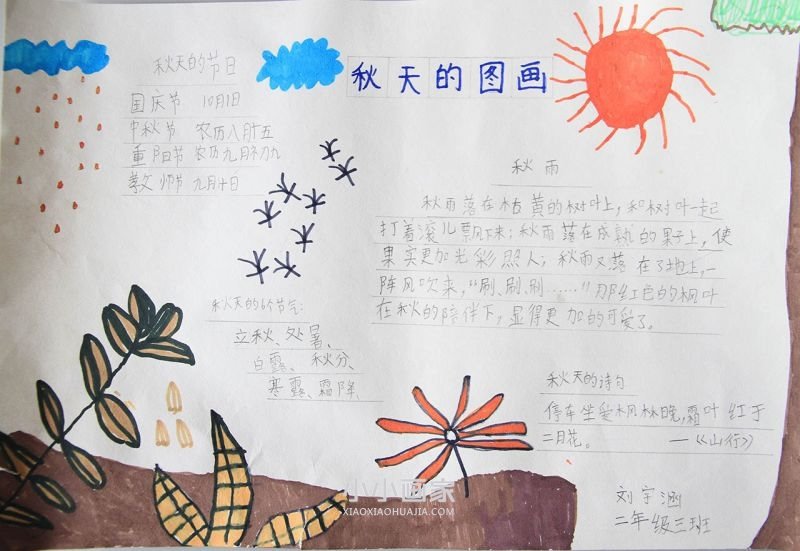 秋天的图画
秋天的节日
国庆节 10月1日
中秋节 农历八月十五
重阳节 农历九月初九
教师节 九月十日
秋天的6个节气:
立秋、处暑、
白露、秋分、
寒露、霜降
秋雨
秋雨落在枯黄的树叶上,和树叶一起
打着滚儿飘下来;秋雨落在成熟的果子上,使
果实更加光彩照人;秋雨又落在了地上,一
阵风吹来,“刷、刷、刷……”那红色的枫叶
在秋的陪伴下,显得更加的可爱了。
秋天的诗句
停车坐爱枫林晚,霜叶红于
二月花。 —《山行》
刘宇涵
二年级三班
小小画家
XIAOXIAOHUAJIA.COM